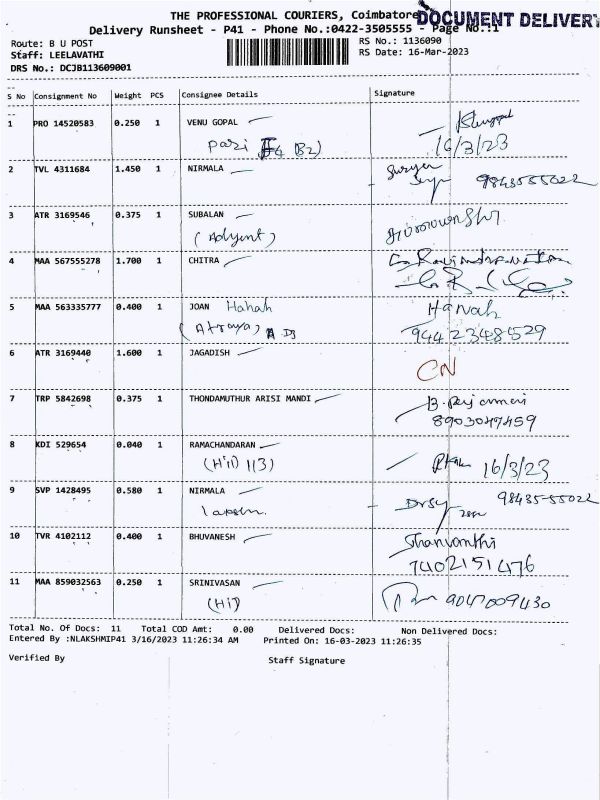 THE PROFESSIONAL COURIERS, Coimbatore
DOCUMENT DELIVERY
Delivery Runsheet - P41 - Phone No.:0422-3505555 - Page No.:1
Route: B U POST
RS No.: 1136090
Staff: LEELAVATHI
RS Date: 16-Mar-2023
DRS No.: DCJB113609001
S No Consignment No Weight PCS Consignee Details Signature
1 PRO 14520583 0.250 1 VENU GOPAL
pari F4 (B2) 16/3/23
2 TVL 4311684 1.450 1 NIRMALA 9843555022
3 ATR 3169546 0.375 1 SUBALAN
4 MAA 567555278 1.700 1 CHITRA
5 MAA 563335777 0.400 1 JOAN Hanah Hanah
(Atraya) 9442348529
6 ATR 3169440 1.600 1 JAGADISH CN
7 TRP 5842698 0.375 1 THONDAMUTHUR ARISI MANDI
8903047459
8 KDI 529654 0.040 1 RAMACHANDRAN
(Hill 113) 16/3/23
9 SVP 1428495 0.580 1 NIRMALA 98435-55022
10 TVR 4102112 0.400 1 BHUVANESH Shanvanthi
7402151476
11 MAA 859032563 0.250 1 SRINIVASAN 9047009430
Total No. Of Docs: 11 Total COD Amt: 0.00 Delivered Docs: Non Delivered Docs:
Entered By :NLAKSHMIP41 3/16/2023 11:26:34 AM Printed On: 16-03-2023 11:26:35
Verified By Staff Signature